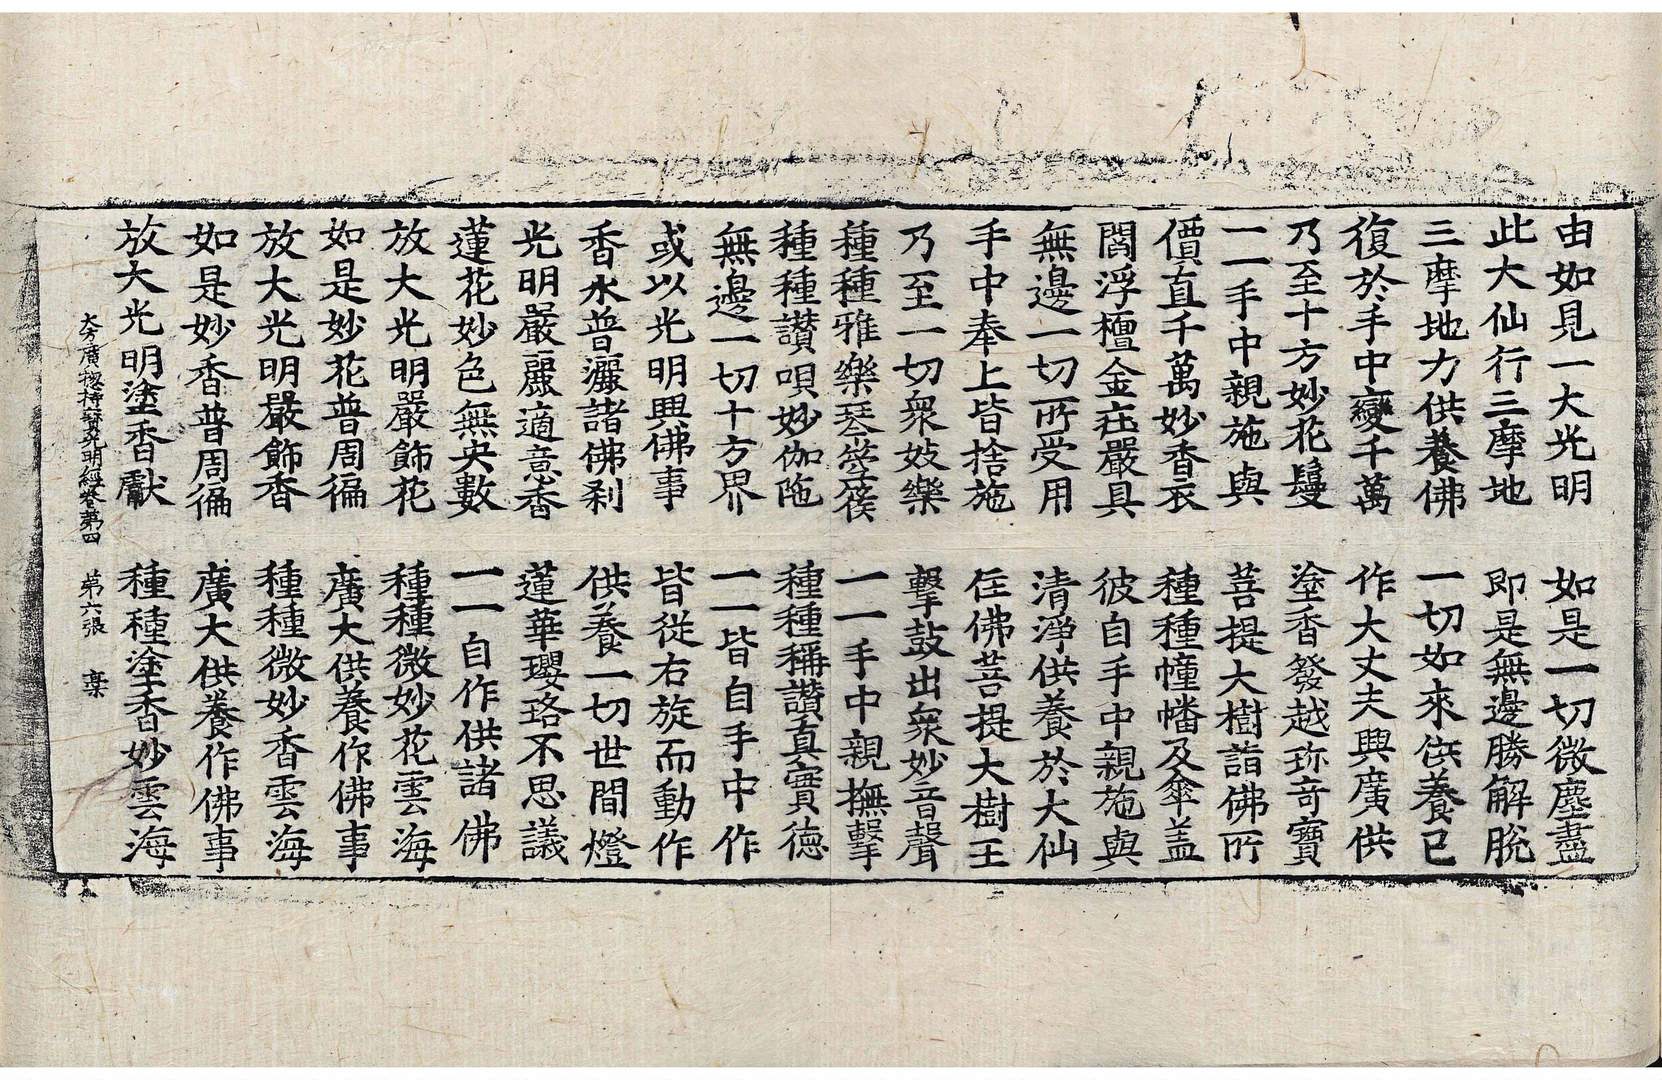 由如見一大光明　如是一切微塵盡
此大仙行三摩地　即是無邊勝解脫
三摩地力供養佛　一切如來供養已
復於手中變千萬　作大丈夫興廣供
乃至十方妙花鬘　塗香發越珎奇寶
一一手中親施與　菩提大樹詣佛所
價直千萬妙香衣　種種幢幡及傘盖
閻浮檀金莊嚴具　彼自手中親施與
無邊一切所受用　清淨供養於大仙
手中奉上皆捨施　住佛菩提大樹王
乃至一切衆妓樂　擊鼓出衆妙音聲
種種雅樂琴箜篌　一一手中親撫擊
種種讃唄妙伽陁　種種稱讃真實德
無邊一切十方界　一一皆自手中作
或以光明興佛事　皆從右旋而動作
香水普灑諸佛刹　供養一切世間燈
光明嚴麗適意香　蓮華瓔珞不思議
蓮花妙色無央數　一一自作供諸佛
放大光明嚴飾花　種種微妙花雲海
如是妙花普周徧　廣大供養作佛事
放大光明嚴飾香　種種微妙香雲海
如是妙香普周徧　廣大供養作佛事
放大光明塗香獻　種種塗香妙雲海
大方廣捴持寳光明經卷第四　第六張　槀